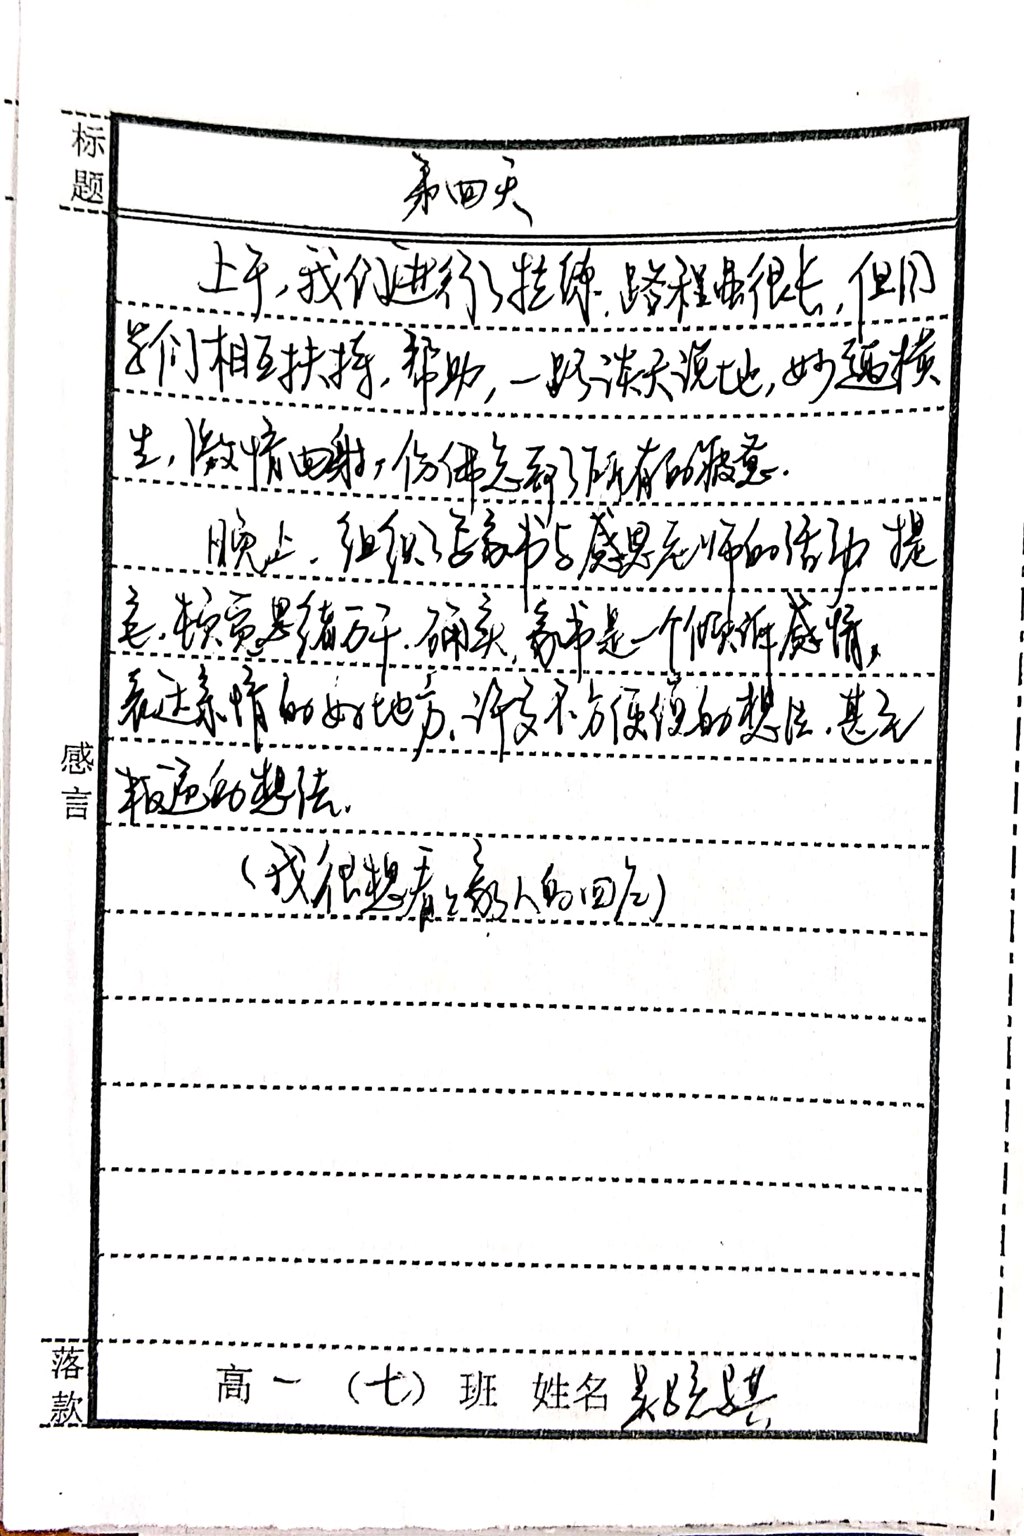 标题
第四天
上午,我们进行了拉练,路程虽很长,但同
学们相互扶持,帮助,一路谈天说地,妙趣横
生,激情四射,仿佛忘却了所有的疲惫.
晚上,组织了写家书与感恩老师的活动 提
笔,顿觉思绪万千.确实,家书是一个倾诉感情,
表达亲情的好地方,许多不方便说的想法,甚至
叛逆的想法.
(我很想看看家人的回应)
感言
落款
高一(七)班 姓名 吴晓骐